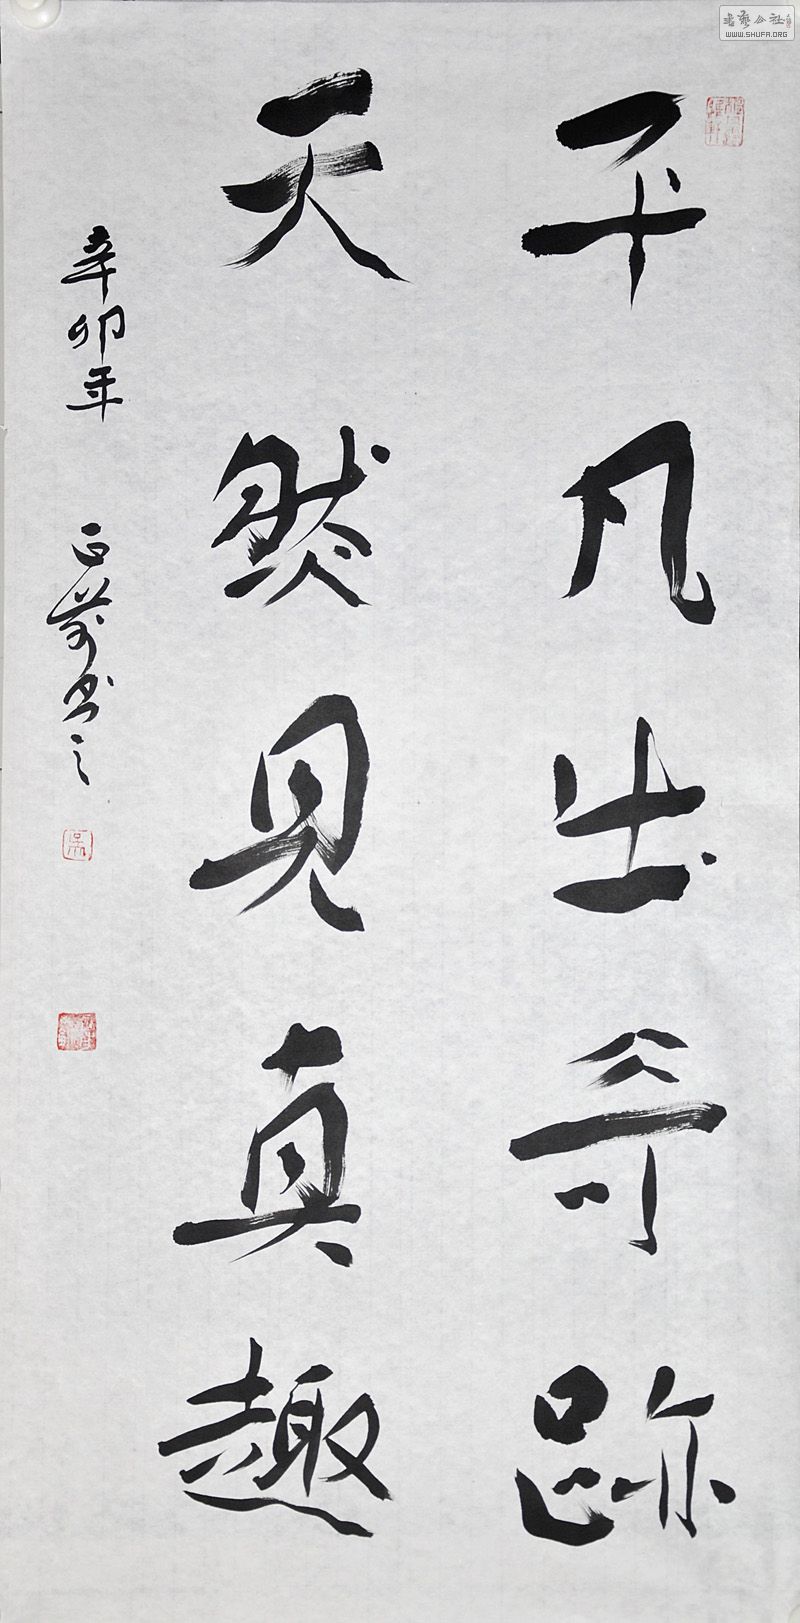 平凡出奇跡
天然見真趣
辛卯年 正前书之
吴
書藝公社
WWW.SHUFA.ORG